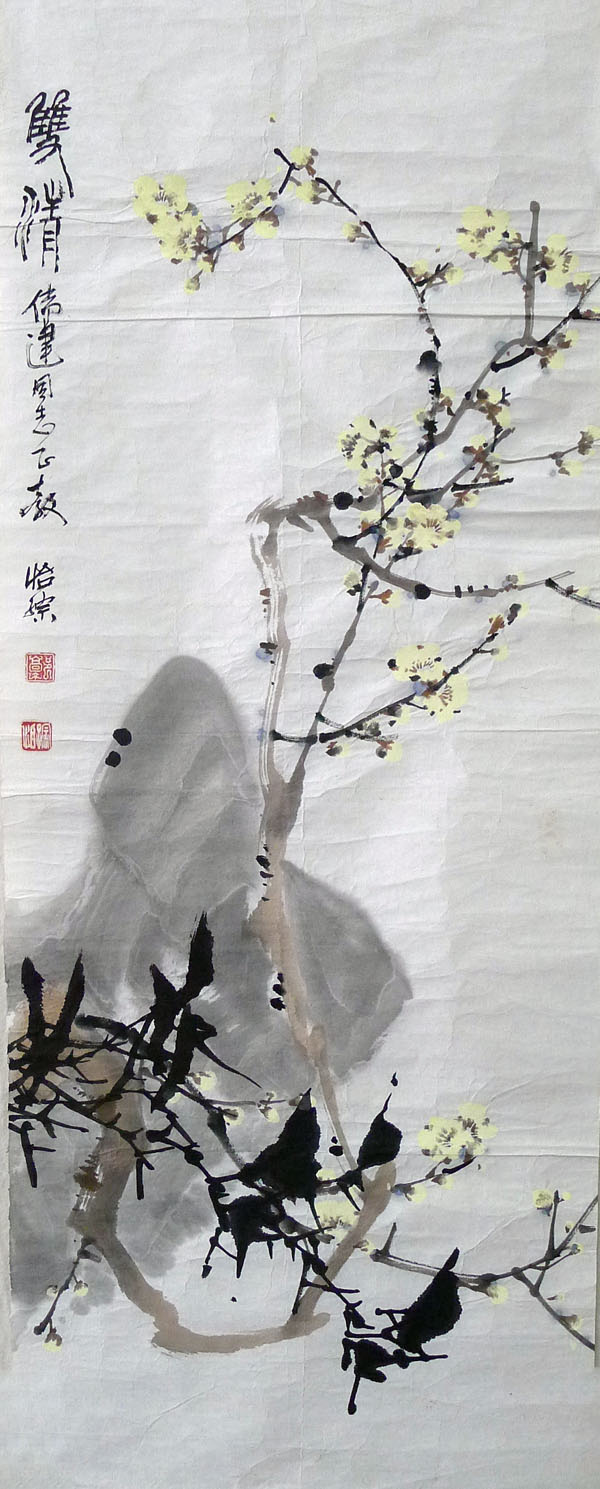 雙清
伟建同志正教 怡孮